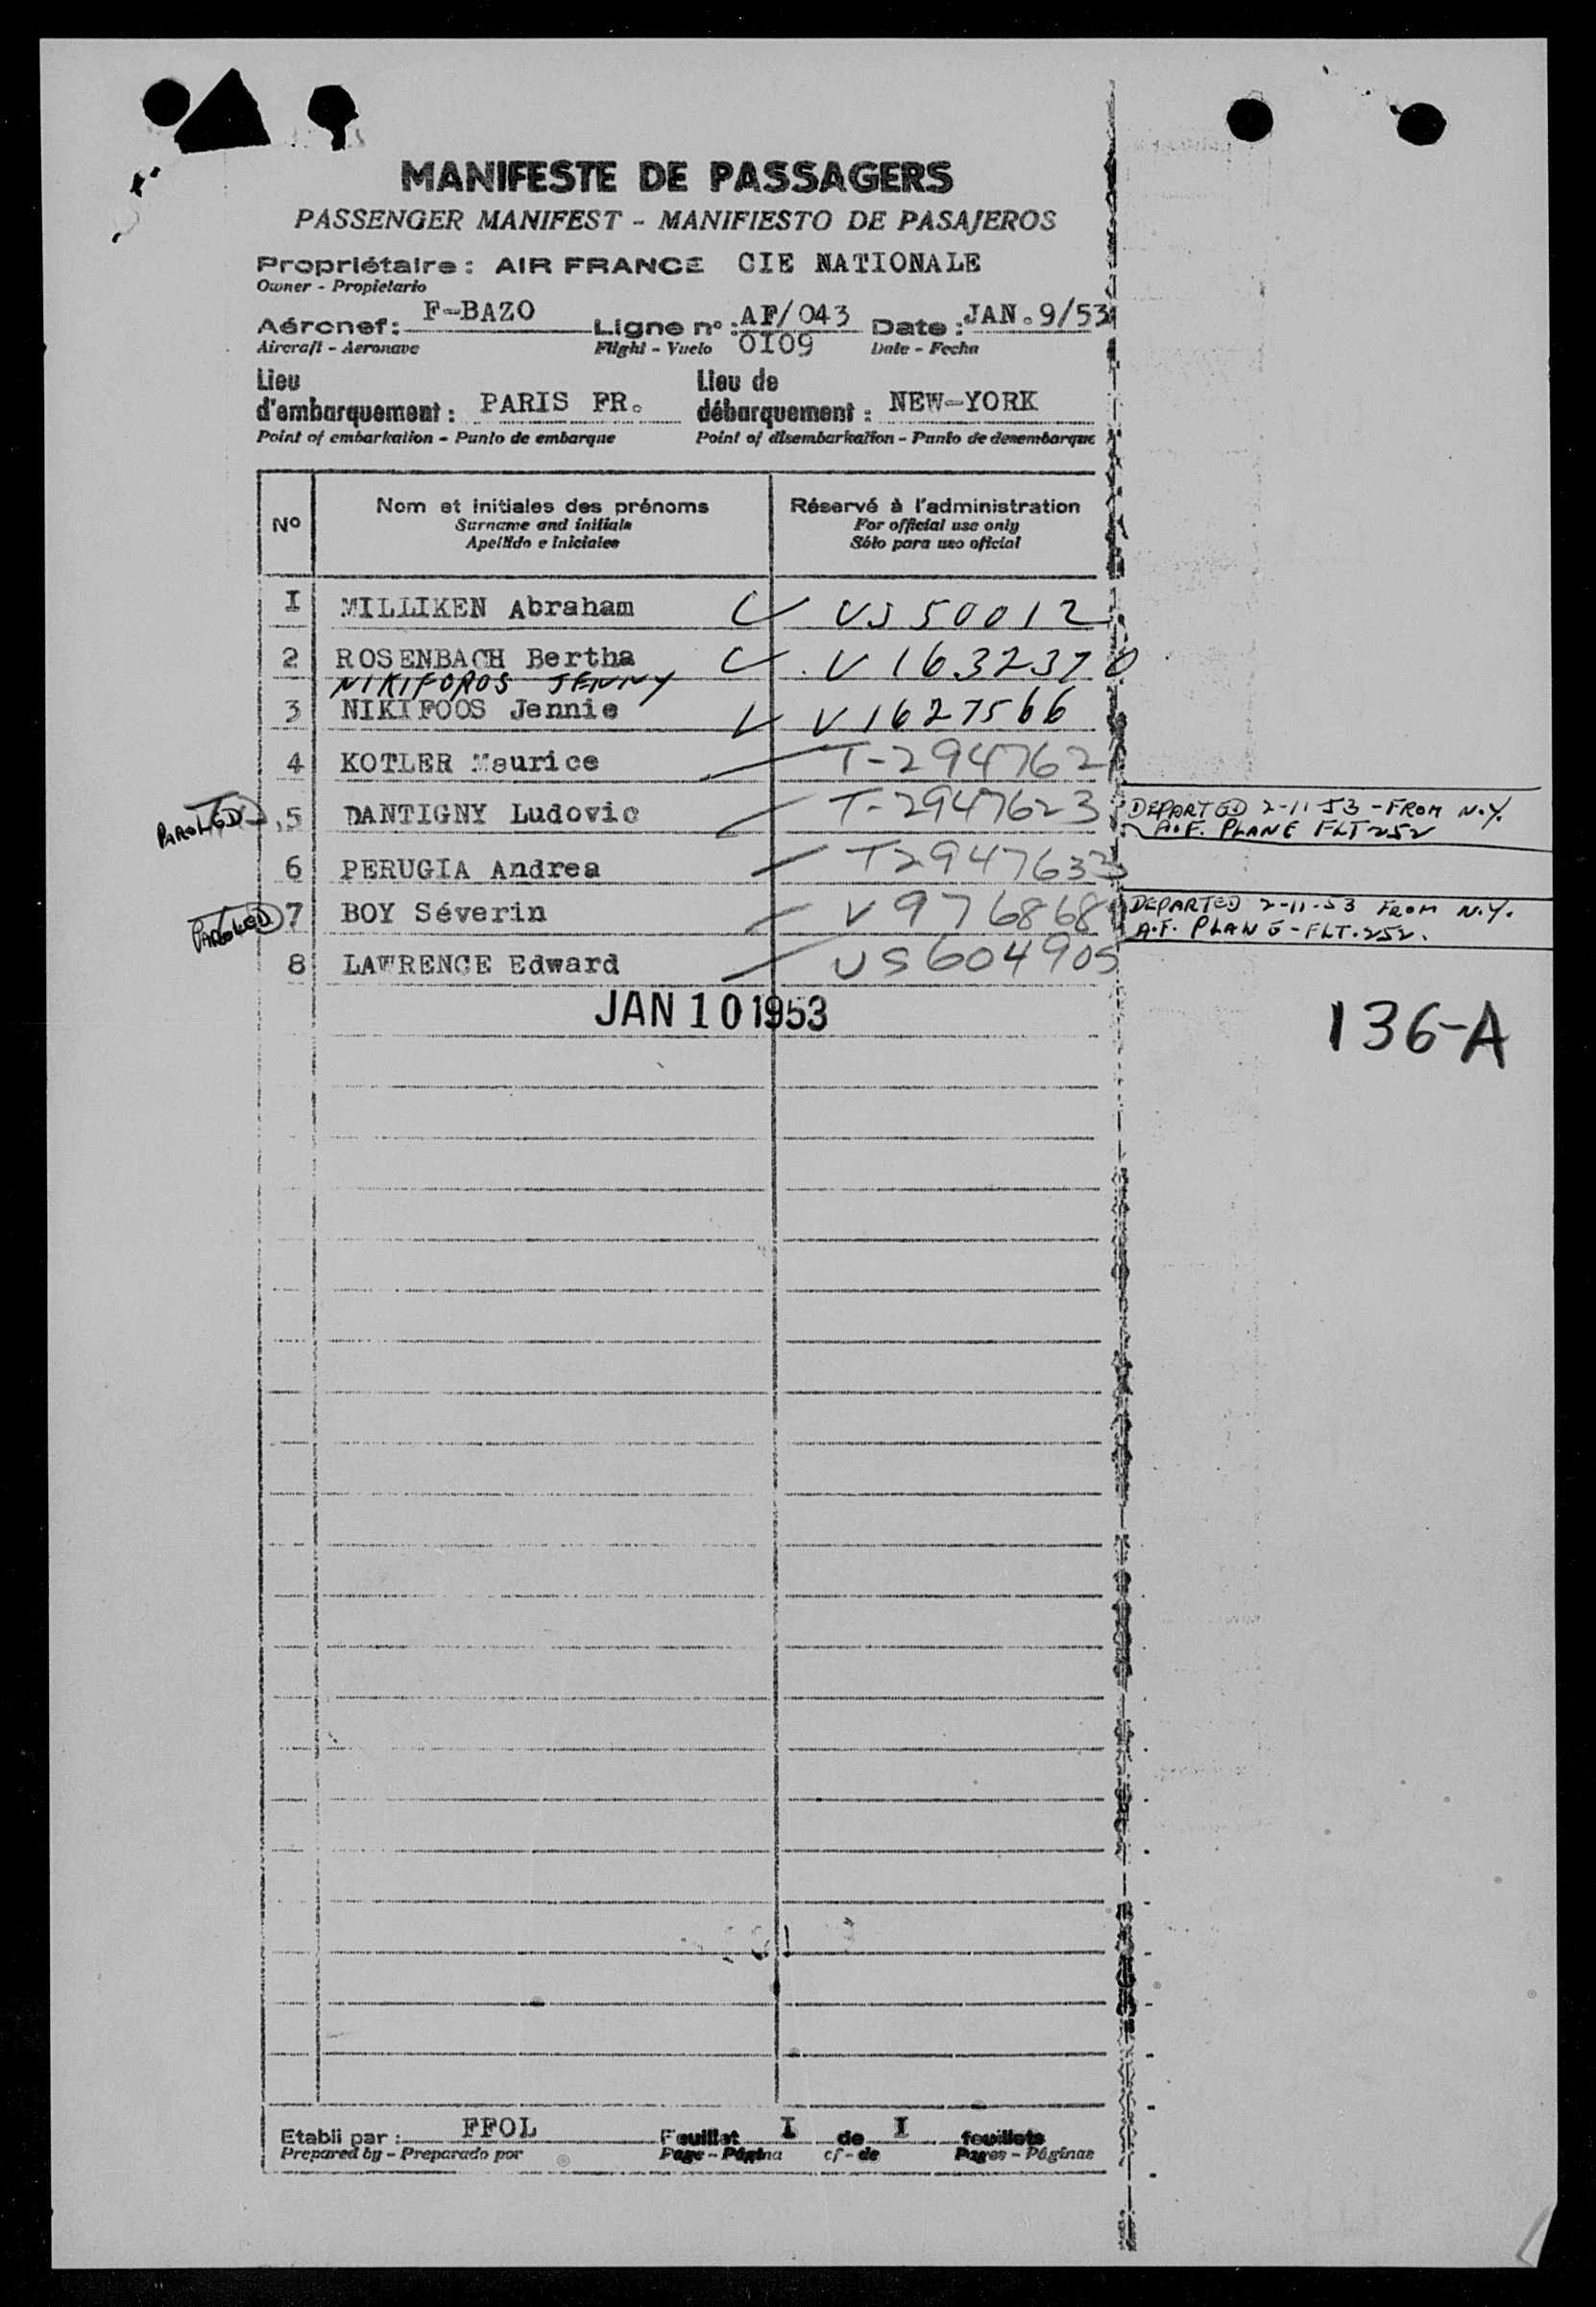 MANIFESTE DE PASSAGERS
PASSENGER MANIFEST - MANIFIESTO DE PASAJEROS
Propriétaire: AIR FRANCE CIE NATIONALE
Owner - Propietario
Aéronef: F-BAZO Ligne nº: AF/043 Date: JAN. 9/53
Aircraft - Aeronave Flight - Vuelo 0I09 Date - Fecha
Lieu d'embarquement: PARIS FR. Lieu de débarquement: NEW-YORK
Point of embarkation - Punto de embarque Point of disembarkation - Punto de desembarque
Nº Nom et initiales des prénoms Réservé à l'administration
Surname and initials For official use only
Apellido e iniciales Sólo para uso oficial
I MILLIKEN Abraham US 50012
2 ROSENBACH Bertha V 1632370
NIKIFOROS JENNY
3 NIKIFOOS Jennie V 1627566
4 KOTLER Maurice T-2947621
PAROLED 5 DANTIGNY Ludovic T-2947623 DEPARTED 2-11-53 - FROM N.Y.
A.F. PLANE FLT 252
6 PERUGIA Andrea T2947633
PAROLED 7 BOY Séverin V 976868 DEPARTED 2-11-53 FROM N.Y.
A.F. PLANE - FLT. 252.
8 LAWRENCE Edward US 604905
JAN 10 1953
136-A
Etabli par: FFOL Feuillet I de I feuillets
Prepared by - Preparado por Page - Página of - de Pages - Páginas